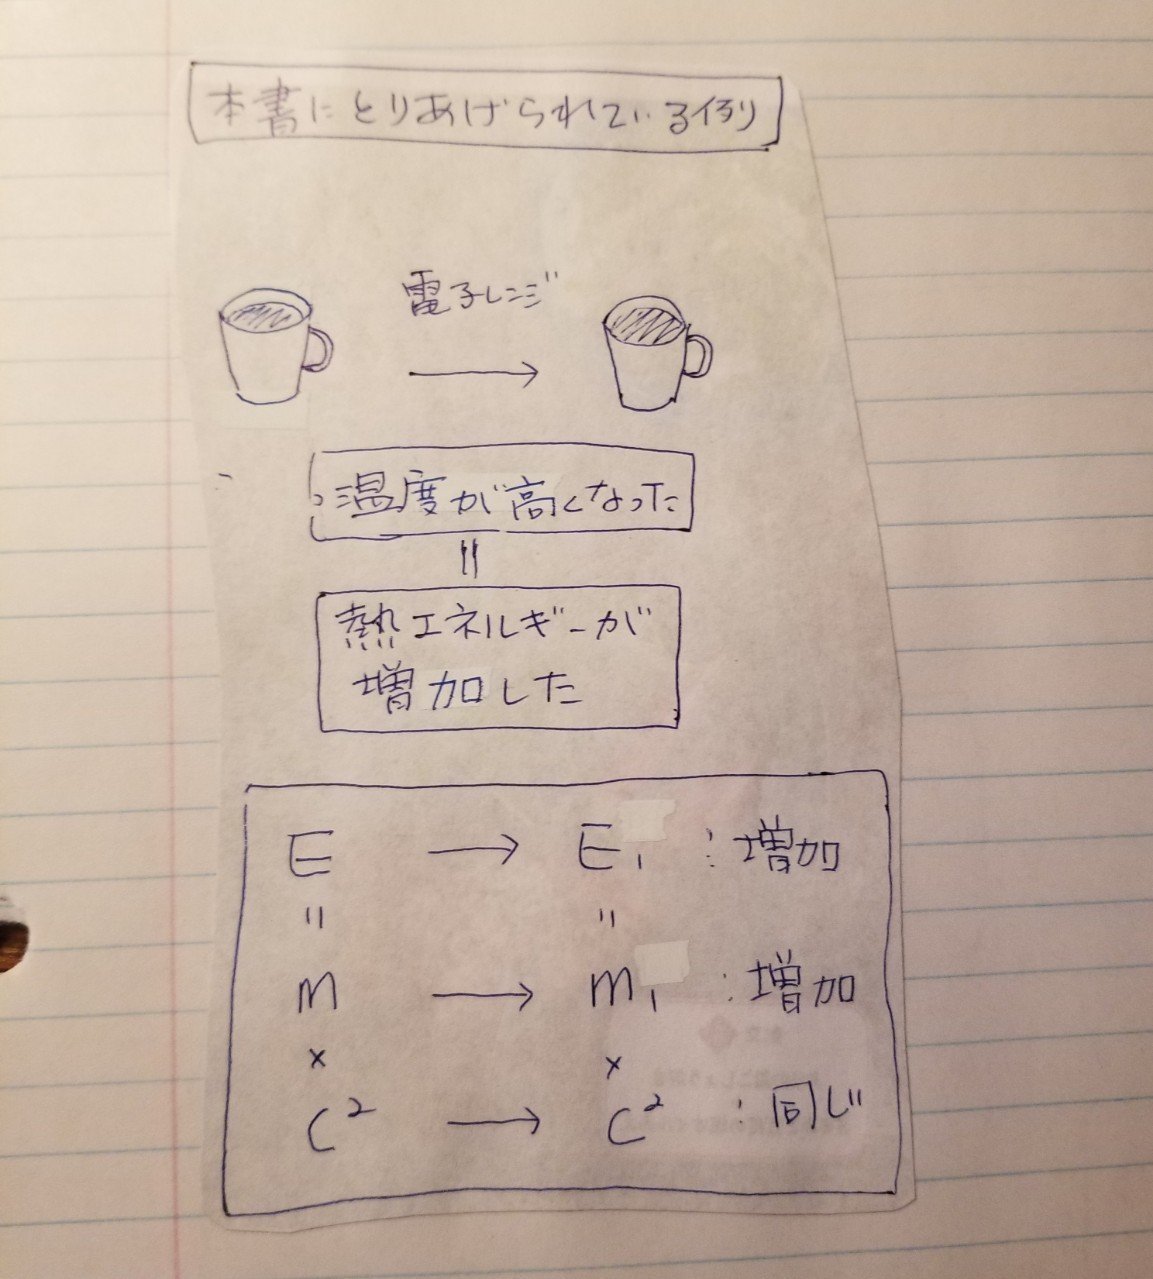 本書にとりあげられている例り
電子レンジ
温度が高くなった
=
熱エネルギーが
増加した
E → E₁ : 増加
= =
m → m₁ : 増加
× ×
C² → C² : 同じ